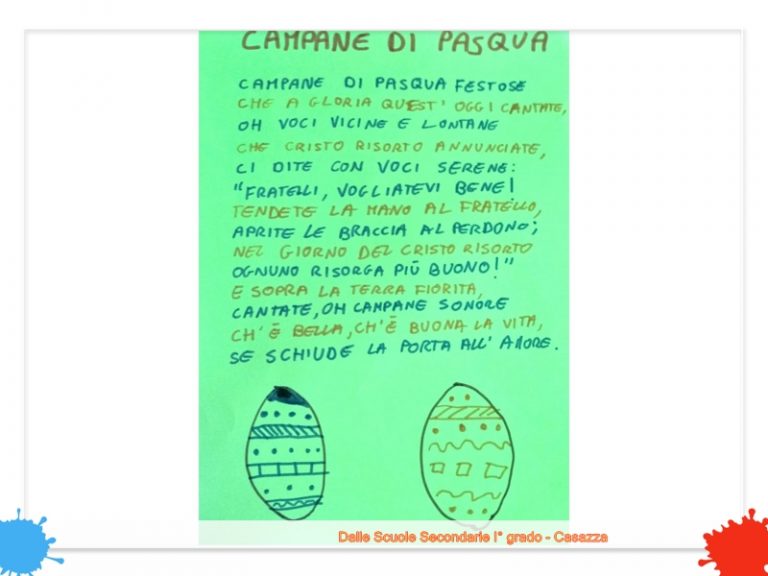 CAMPANE DI PASQUA
CAMPANE DI PASQUA FESTOSE
CHE A GLORIA QUEST' OGGI CANTATE,
OH VOCI VICINE E LONTANE
CHE CRISTO RISORTO ANNUNCIATE,
CI DITE CON VOCI SERENE:
"FRATELLI, VOGLIATEVI BENE!
TENDETE LA MANO AL FRATELLO,
APRITE LE BRACCIA AL PERDONO;
NEL GIORNO DEL CRISTO RISORTO
OGNUNO RISORGA PIÙ BUONO!"
E SOPRA LA TERRA FIORITA,
CANTATE, OH CAMPANE SONORE
CH'È BELLA, CH'È BUONA LA VITA,
SE SCHIUDE LA PORTA ALL' AMORE.
Dalle Scuole Secondarie I° grado - Casazza